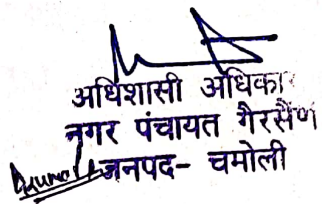 अधिशासी अधिका
नगर पंचायत गैरसैंण
जनपद- चमोली